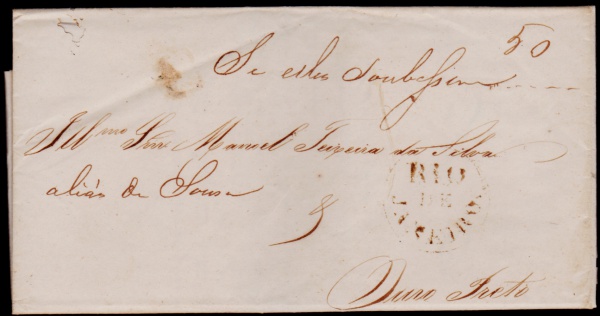 50
Se elles soubessem
Illmo Snr Manuel Teixeira da Silva
aliás de Sousa
RIO
DE
JANEIRO
Ouro Preto